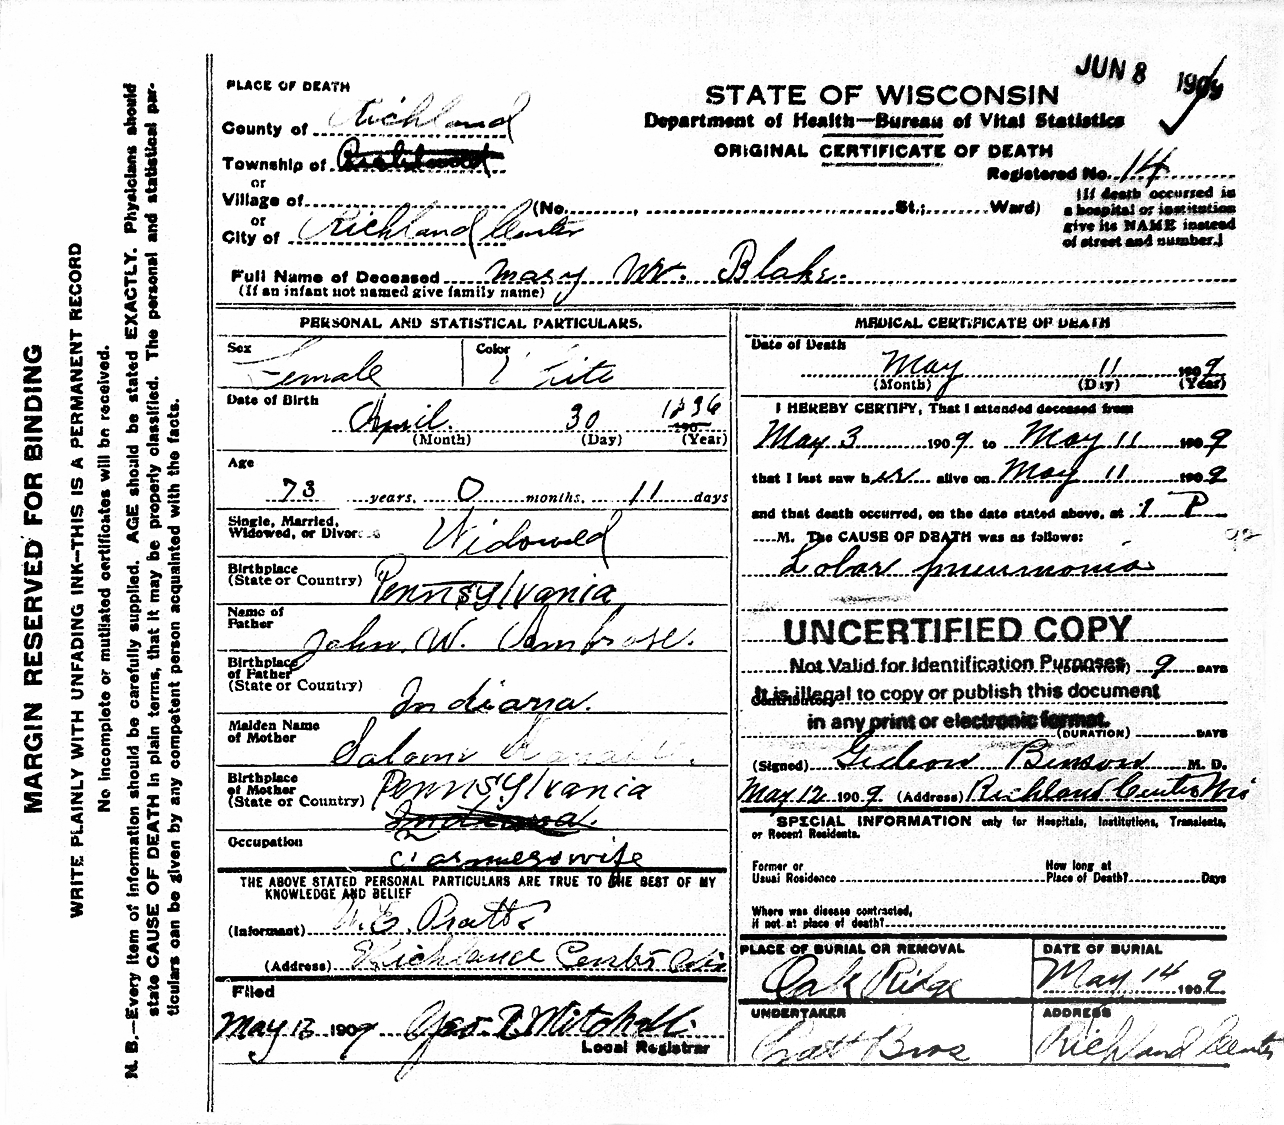 JUN 8 1909
STATE OF WISCONSIN
Department of Health—Bureau of Vital Statistics
ORIGINAL CERTIFICATE OF DEATH
Registered No. 14
[If death occurred in
a hospital or institution
give its NAME instead
of street and number.]
PLACE OF DEATH
County of Richland
Township of
or
Village of (No. , St.; Ward)
or
City of Richland Center
Full Name of Deceased Mary W. Blake
(If an infant not named give family name)
PERSONAL AND STATISTICAL PARTICULARS.
Sex Female Color White
Date of Birth April 30 1836
190
(Month) (Day) (Year)
Age
73 years, 0 months, 11 days
Single, Married,
Widowed, or Divorced Widowed
Birthplace
(State or Country) Pennsylvania
Name of
Father John W. Ambrose.
Birthplace
of Father
(State or Country) Indiana.
Maiden Name
of Mother Salome
Birthplace
of Mother
(State or Country) Pennsylvania
Indiana.
Occupation Farmers wife
THE ABOVE STATED PERSONAL PARTICULARS ARE TRUE TO THE BEST OF MY
KNOWLEDGE AND BELIEF
(Informant) W. E. Pratt
(Address) Richland Center Wis
Filed
May 12 1909 Geo. R. Mitchell.
Local Registrar
MEDICAL CERTIFICATE OF DEATH
Date of Death
May 11 1909
(Month) (Day) (Year)
I HEREBY CERTIFY, That I attended deceased from
May 3 1909 to May 11 1909
that I last saw her alive on May 11 1909
and that death occurred, on the date stated above, at 1 P
M. The CAUSE OF DEATH was as follows:
92
Lobar pneumonia
UNCERTIFIED COPY
Not Valid for Identification Purposes
(DURATION) 9 DAYS
It is illegal to copy or publish this document
Contributory
in any print or electronic format.
(DURATION) DAYS
(Signed) Gideon Benson M. D.
May 12 1909 (Address) Richland Center Wis
SPECIAL INFORMATION only for Hospitals, Institutions, Transients,
or Recent Residents.
Former or
Usual Residence
How long at
Place of Death? Days
Where was disease contracted,
if not at place of death?
PLACE OF BURIAL OR REMOVAL
Oak Ridge
DATE OF BURIAL
May 14 1909
UNDERTAKER
Pratt Bros
ADDRESS
Richland Center
MARGIN RESERVED FOR BINDING
WRITE PLAINLY WITH UNFADING INK—THIS IS A PERMANENT RECORD
No incomplete or mutilated certificates will be received.
N. B.—Every item of information should be carefully supplied. AGE should be stated EXACTLY. Physicians should
state CAUSE OF DEATH in plain terms, that it may be properly classified. The personal and statistical par-
ticulars can be given by any competent person acquainted with the facts.